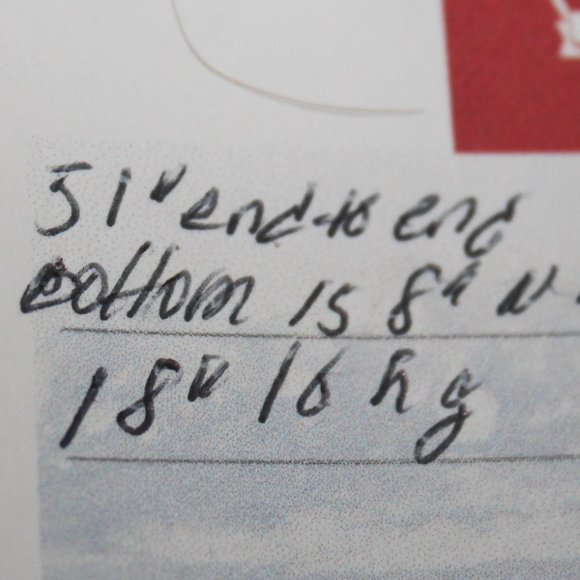 51" end-to end
bottom is 8"
18" 16 kg